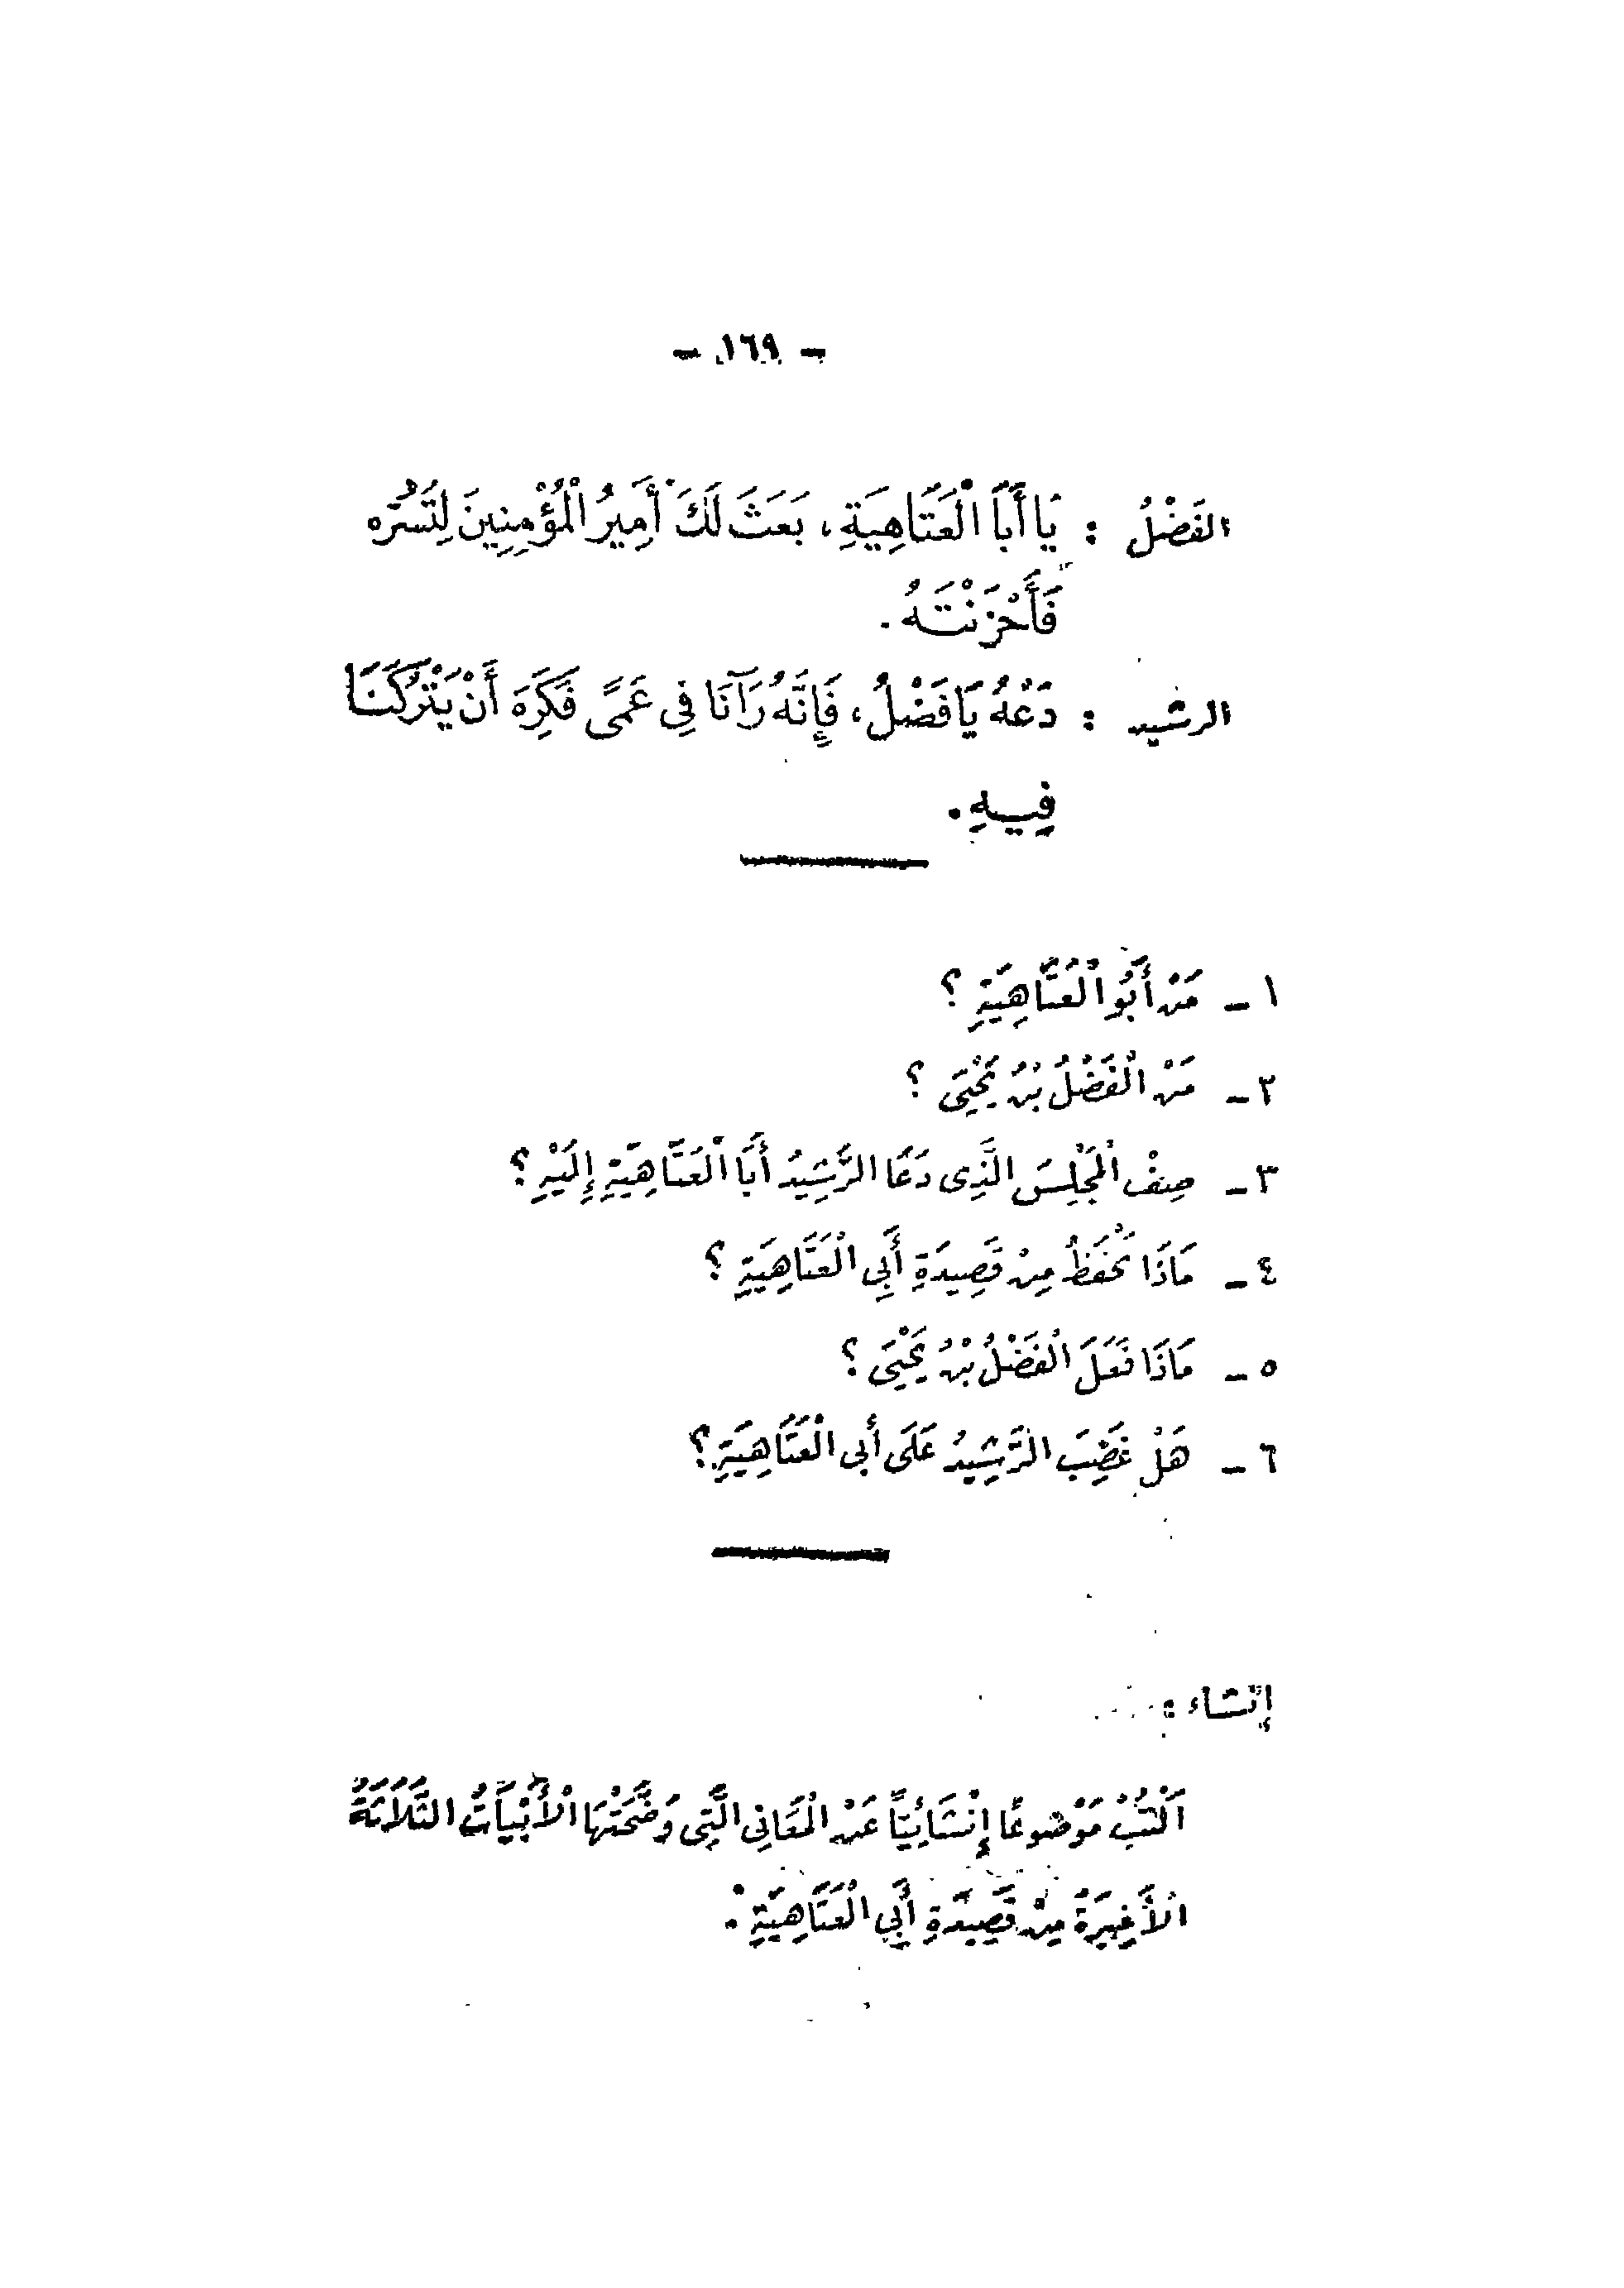 - ١٦٩ -
الفَضْلُ : يَا أَبَا الْعَتَاهِيَةِ ، بَعَثَ لَكَ أَمِيرُ الْمُؤْمِنِينَ لِتَسُرَّه
فَأَحْزَنْتَهُ .
الرشيد : دَعْهُ يَا فَضْلُ ، فَإِنَّهُ رَآنَا فِي عَمًى فَكَرِهَ أَنْ يَتْرُكَنَا
فِيهِ .
١ - مَنْ أَبُو الْعَتَاهِيَةِ ؟
٢ - مَنْ الْفَضْلُ بْنُ يَحْيَى ؟
٣ - صِفْ الْمَجْلِسَ الَّذِى دَعَا الرَّشِيدُ أَبَا الْعَتَاهِيَةِ إِلَيْهِ ؟
٤ - مَاذَا تَحْفَظُ مِنْ قَصِيدَةِ أَبِي الْعَتَاهِيَةِ ؟
٥ - مَاذَا فَعَلَ الْفَضْلُ بْنُ يَحْيَى ؟
٦ - هَلْ غَضِبَ الرَّشِيدُ عَلَى أَبى الْعَتَاهِيَةِ ؟
إنشاء :
اَكْتُبْ مَوْضُوعًا إِنْشَائِيًّا عَنْ الْمَعَانِى الَّتِى وَضَّحَتْهَا الْأَبْيَاتُ الثَّلَاثَةُ
الْأَخِيرَةُ مِنْ قَصِيدَةِ أَبِي الْعَتَاهِيَةِ .